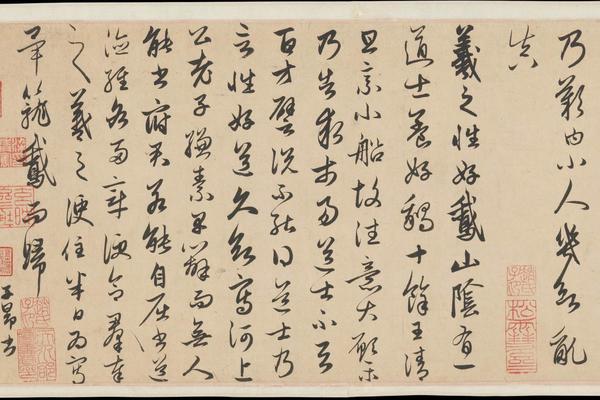 乃歎曰小人幾欲亂
真
羲之性好鵝山陰有一
道士養好鵝十餘王清
旦乘小船故往意大願樂
乃告求市易道士不與
百方譬說不能得道士乃
言性好道久欲寫河上
公老子縑素早辦而無人
能書府君若能自屈書道
德經各兩章便合群奉
之羲之便住半日為寫
畢籠鵝而歸
子昂書